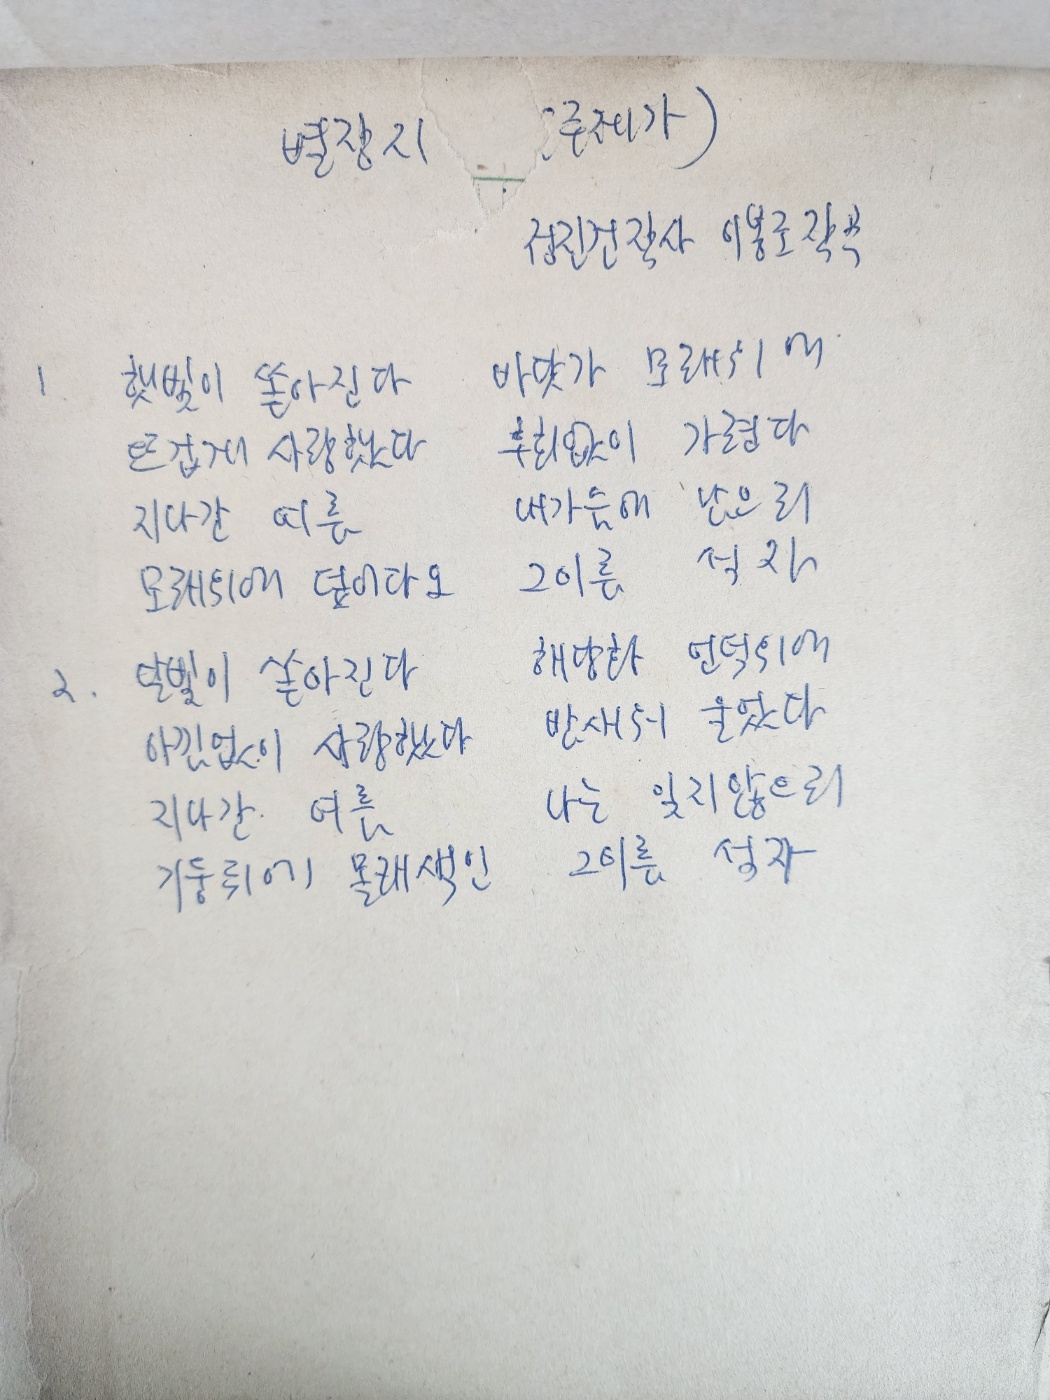 별장지 (주제가)
정진건작사 이봉조작곡
1. 햇빛이 쏟아진다 바닷가 모래위에
뜨겁게 사랑했다 후회없이 가련다
지나간 여름 내가슴에 남으리
모래위에 덮이다오 그이름 석자
2. 달빛이 쏟아진다 해당화 언덕위에
아낌없이 사랑했다 밤새워 울었다
지나간 여름 나는 잊지않으리
기둥뒤에 몰래색인 그이름 석자